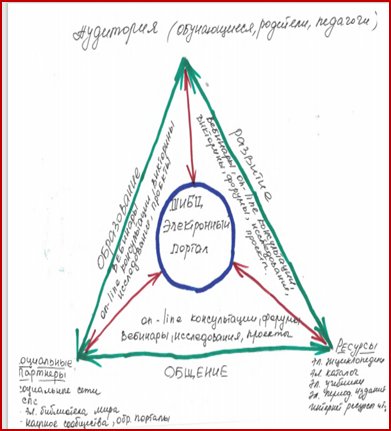 Аудитория (обучающиеся, родители, педагоги)
ОБРАЗОВАНИЕ
Вебинары викторины
on-line консультации
исследования, проекты
РАЗВИТИЕ
Вебинары on-line консультации,
викторины, форумы, исследования,
проекты.
ШИБЦ
Электронный
портал
on-line консультации, форумы
Вебинары, исследования, проекты
ОБЩЕНИЕ
оциальные
Партнеры
социальные сети
СПС
эл. библиотека мира
научное сообщество, обр. порталы
Ресурсы
эл. энциклопедии
эл каталог
эл. учебники
эл. период издания
интернет ресурсы